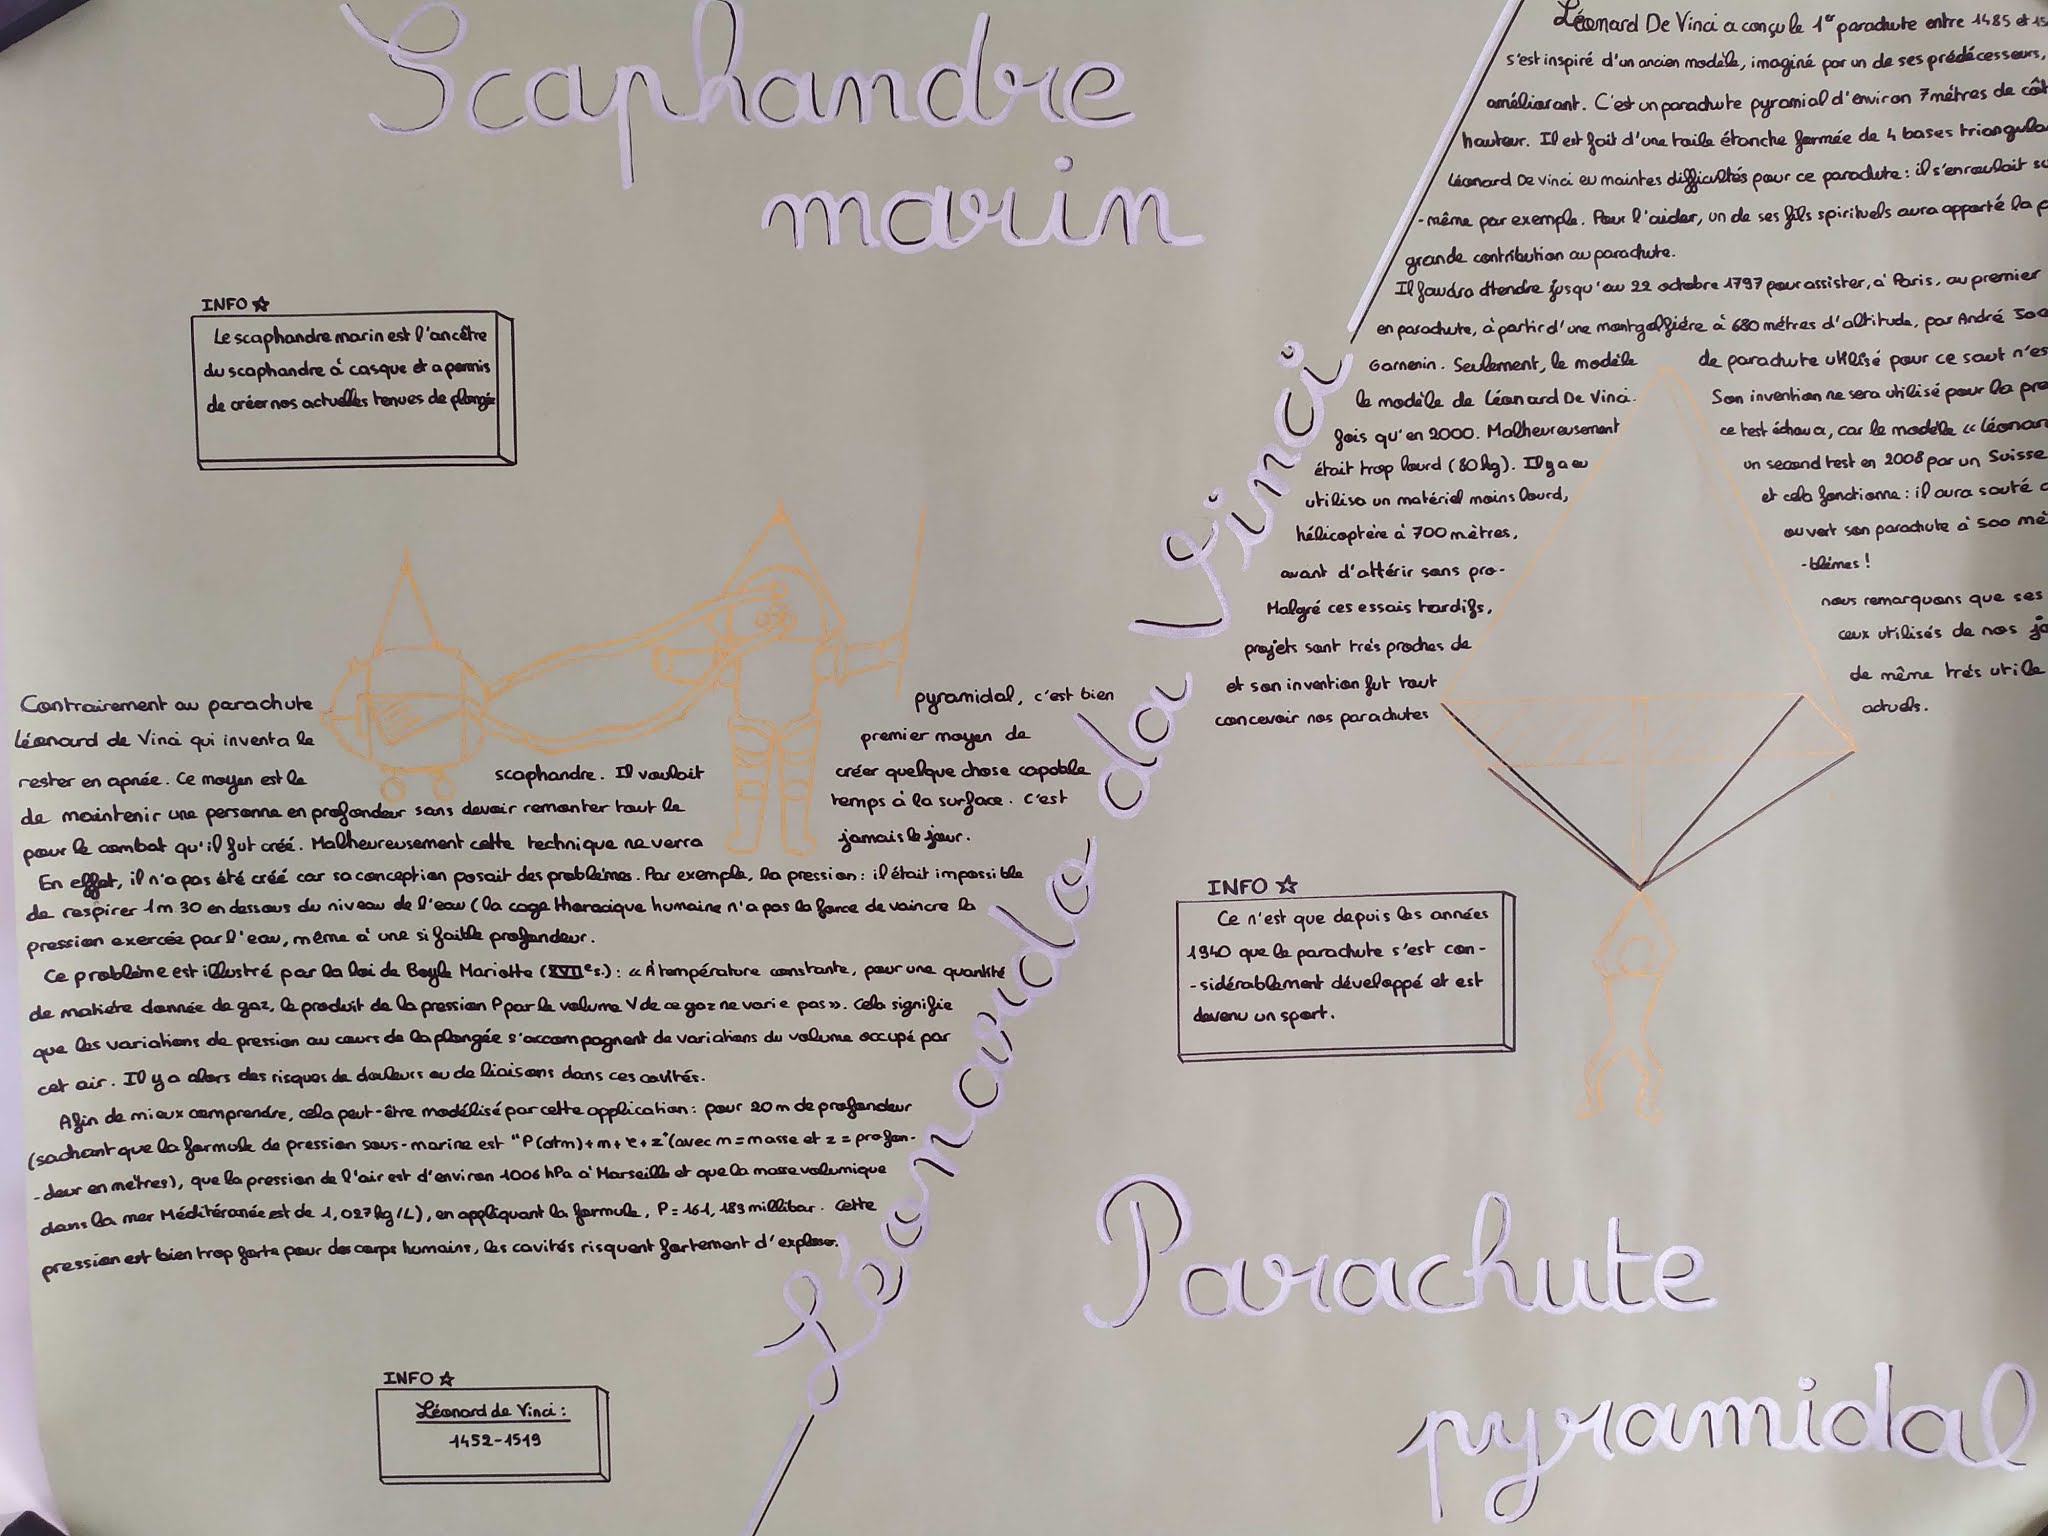 Scaphandre
marin
INFO
Le scaphandre marin est l'ancêtre
du scaphandre à casque et a permis
de créer nos actuelles tenues de plongée
Contrairement au parachute pyramidal, c'est bien
Léonard de Vinci qui inventa le premier moyen de
rester en apnée. Ce moyen est le scaphandre. Il voulait créer quelque chose capable
de maintenir une personne en profondeur sans devoir remonter tout le temps à la surface. C'est
pour le combat qu'il fut créé. Malheureusement cette technique ne verra jamais le jour.
En effet, il n'a pas été créé car sa conception posait des problèmes. Par exemple, la pression : il était impossible
de respirer 1m30 en dessous du niveau de l'eau (la cage thoracique humaine n'a pas la force de vaincre la
pression exercée par l'eau, même à une si faible profondeur.
Ce problème est illustré par la loi de Boyle Mariotte (XVIIe s.) : « À température constante, pour une quantité
de matière donnée de gaz, le produit de la pression P par le volume V de ce gaz ne varie pas ». Cela signifie
que les variations de pression au cours de la plongée s'accompagnent de variations du volume occupé par
cet air. Il y a alors des risques de douleurs ou de liaisons dans ces cavités.
Afin de mieux comprendre, cela peut-être modélisé par cette application : pour 20 m de profondeur
(sachant que la formule de pression sous-marine est "P(atm)+m+ +z" (avec m = masse et z = profon-
-deur en mètres), que la pression de l'air est d'environ 1006 hPa à Marseille et que la masse volumique
dans la mer Méditéranée est de 1,027kg/L), en appliquant la formule, P = 161,183 millibar. Cette
pression est bien trop forte pour des corps humains, les cavités risquent fortement d'exploser.
INFO
Léonard de Vinci :
1452-1519
Léonardo da Vinci
Léonard De Vinci a conçu le 1er parachute entre 1485 et
s'est inspiré d'un ancien modèle, imaginé par un de ses prédécesseurs,
améliorant. C'est un parachute pyramial d'environ 7 mètres de
hauteur. Il est fait d'une toile étanche formée de 4 bases
Léonard De Vinci eu maintes difficultés pour ce parachute : il s'enroulait
-même par exemple. Pour l'aider, un de ses fils spirituels aura apporté la
grande contribution au parachute.
Il faudra attendre jusqu'au 22 octobre 1797 pour assister, à Paris, au premier
en parachute, à partir d'une montgolfière à 680 mètres d'altitude, par André
Garnerin. Seulement, le modèle de parachute utilisé pour ce saut
le modèle de Léonard De Vinci. Son invention ne sera utilisé pour la
fois qu'en 2000. Malheureusement ce test échoua, car le modèle «
était trop lourd (80 kg). Il y a eu un second test en 2008 par un Suisse
utilisa un matériel moins lourd, et cela fonctionne : il aura sauté
hélicoptère à 700 mètres, ouvert son parachute à 500
avant d'attérir sans pro- -blèmes !
Malgré ces essais hardifs, nous remarquons que ses
projets sont très proches de ceux utilisés de nos
et son invention fut tout de même très utile
concevoir nos parachutes actuels.
INFO
Ce n'est que depuis les années
1940 que le parachute s'est con-
-sidérablement développé et est
devenu un sport.
Parachute
pyramidal